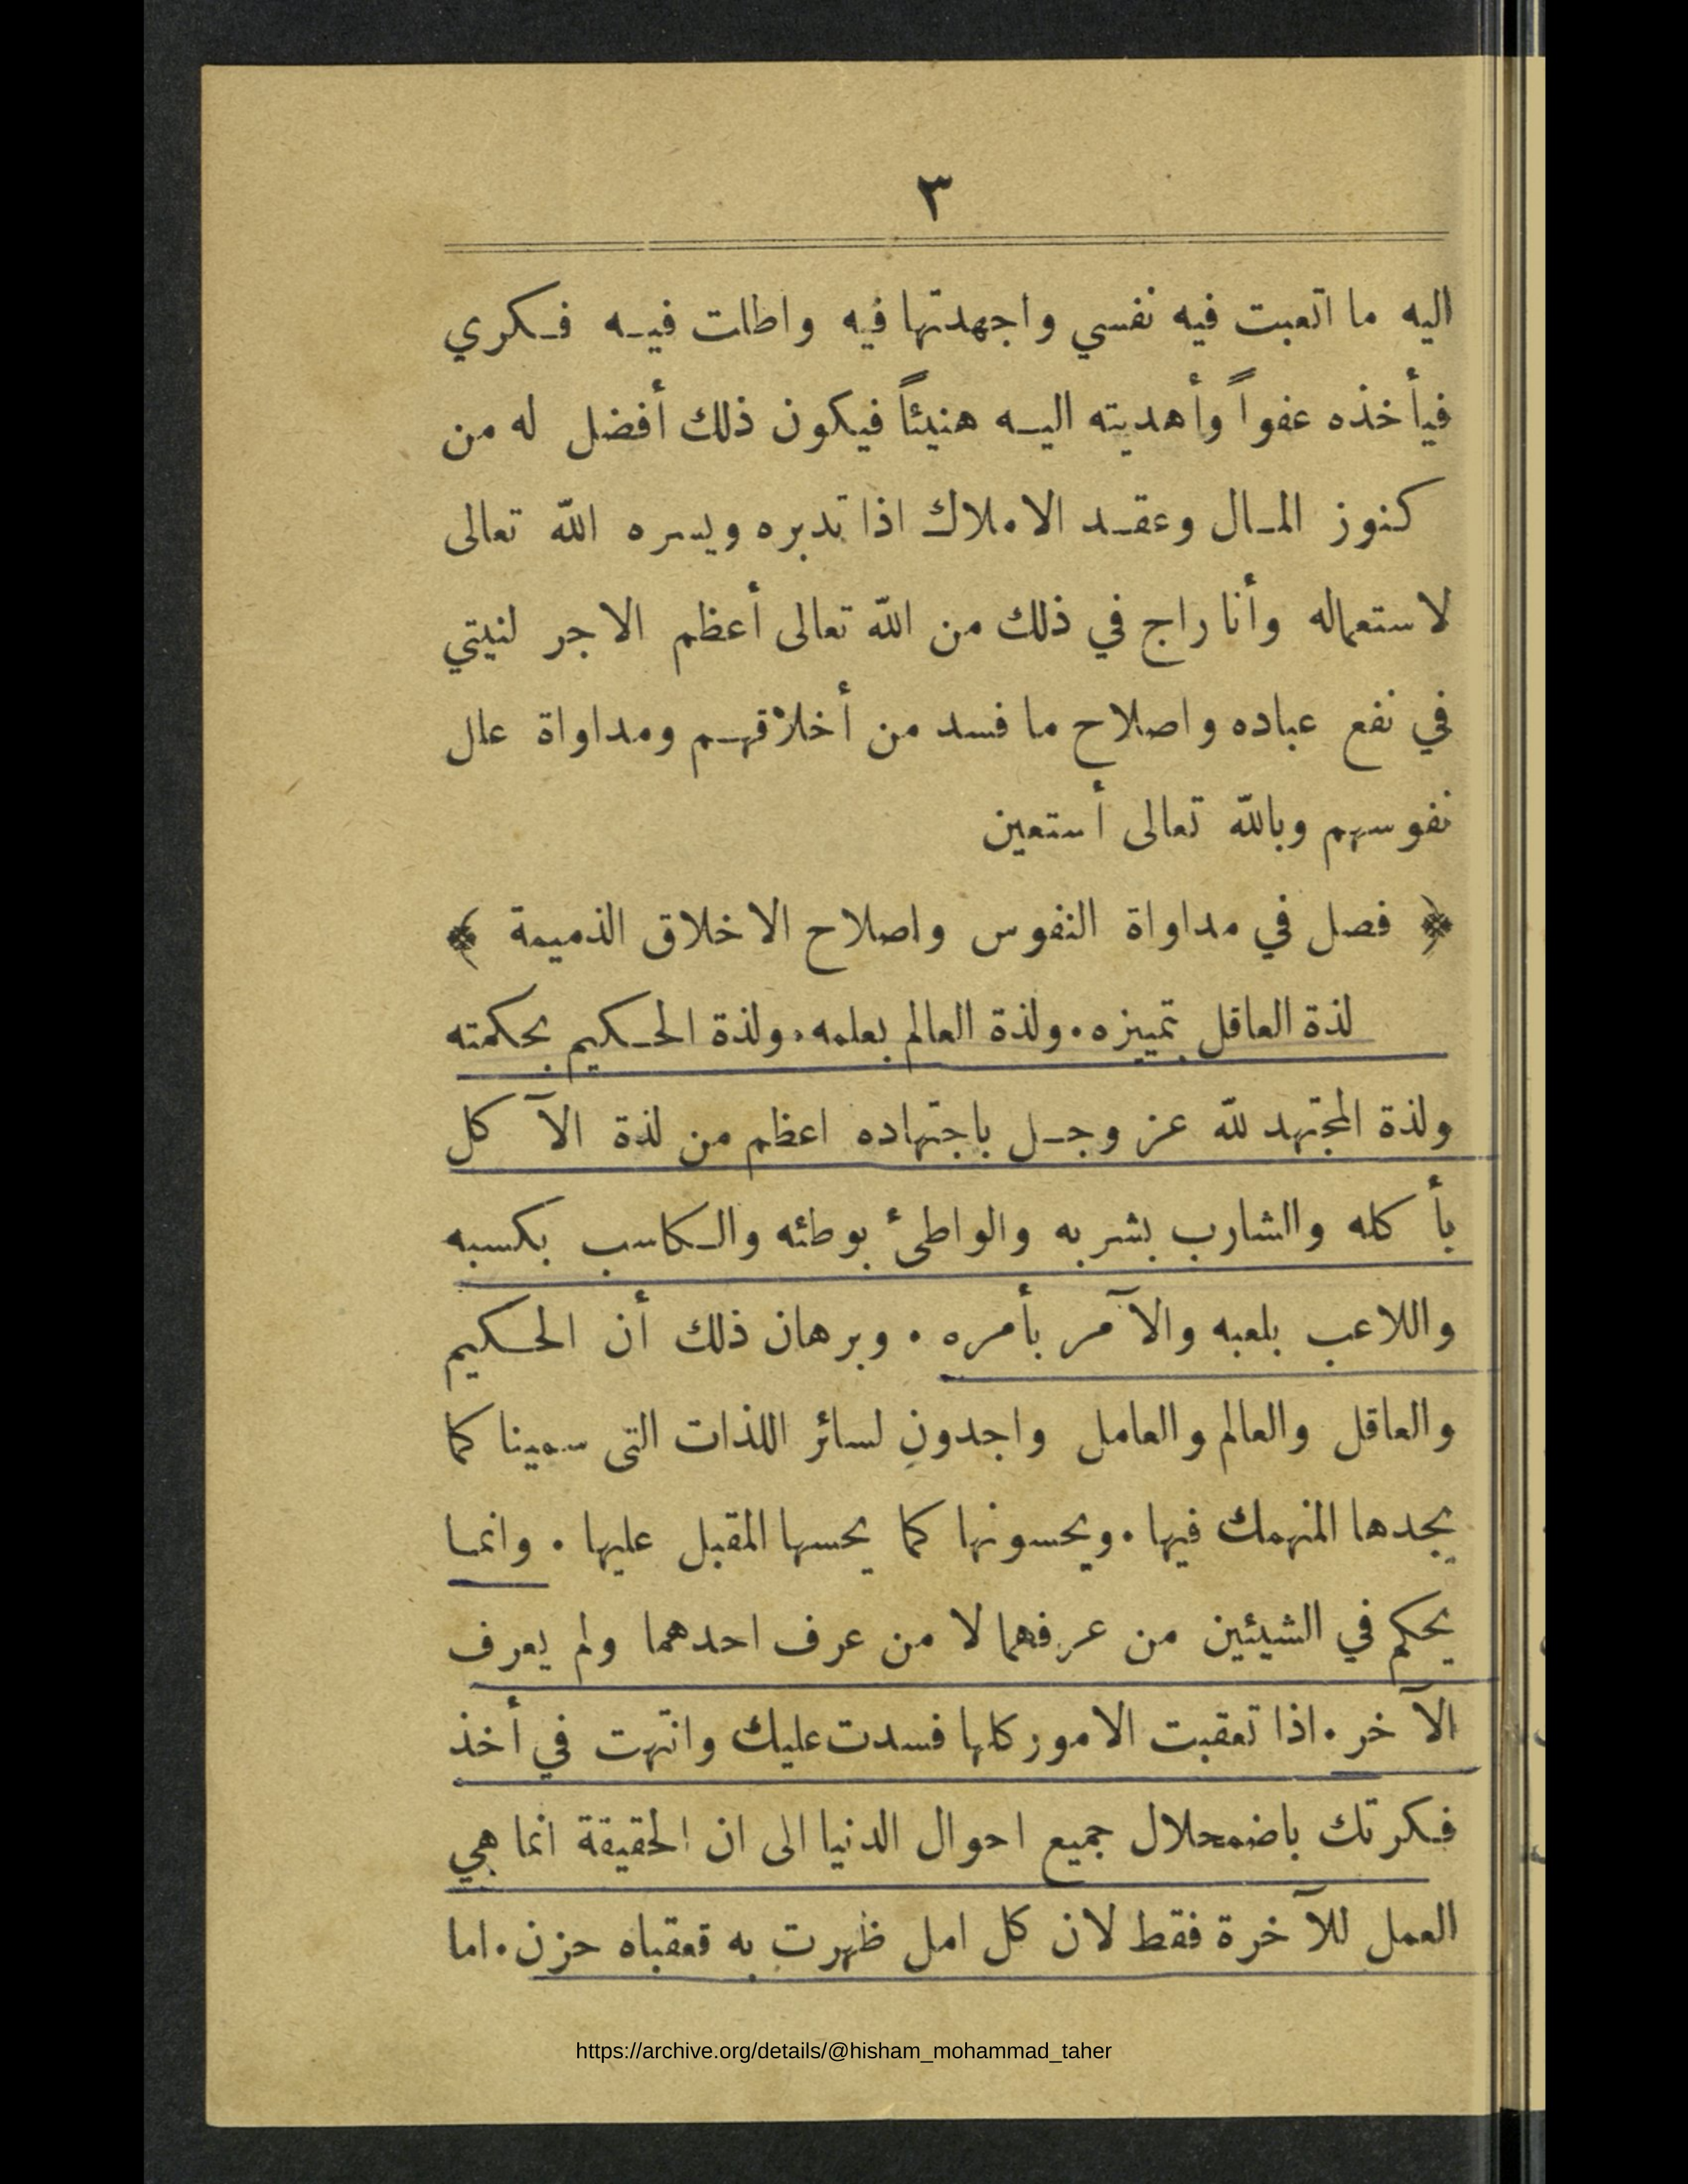 ٣
اليه ما اتعبت فيه نفسي واجهدتها فيه واطلت فيه فكري
فيأخذه عفواً وأهديته اليه هنيئاً فيكون ذلك أفضل له من
كنوز المال وعقد الاملاك اذا تدبره ويسره الله تعالى
لاستعماله وأنا راج في ذلك من الله تعالى أعظم الاجر لنيتي
في نفع عباده واصلاح ما فسد من أخلاقهم ومداواة علل
نفوسهم وبالله تعالى أستعين
﴿ فصل في مداواة النفوس واصلاح الاخلاق الذميمة ﴾
لذة العاقل بتمييزه . ولذة العالم بعلمه . ولذة الحكيم بحكمته
ولذة المجتهد لله عز وجل باجتهاده اعظم من لذة الآكل
بأكله والشارب بشربه والواطئ بوطئه والكاسب بكسبه
واللاعب بلعبه والآمر بأمره . وبرهان ذلك أن الحكيم
والعاقل والعالم والعامل واجدون لسائر اللذات التى سمينا كما
يجدها المنهمك فيها . ويحسونها كما يحسها المقبل عليها . وانما
يحكم في الشيئين من عرفهما لا من عرف احدهما ولم يعرف
الآخر . اذا تعقبت الامور كلها فسدت عليك وانتهت في أخذ
فكرتك باضمحلال جميع احوال الدنيا الى ان الحقيقة انما هي
العمل للآخرة فقط لان كل امل ظهرت به فعقباه حزن . اما
https://archive.org/details/@hisham_mohammad_taher